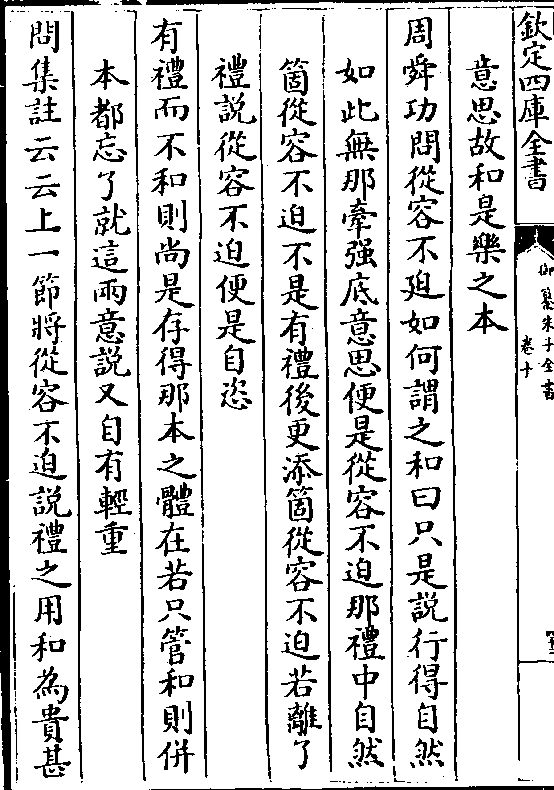 欽定四庫全書
御纂朱子全書
卷十
意思故和是樂之本
周舜功問從容不廹如何謂之和曰只是說行得自然
如此無那牽强底意思便是從容不迫那禮中自然
箇從容不迫不是有禮後更添箇從容不迫若離了
禮説從容不迫便是自恣
有禮而不和則尚是存得那本之體在若只管和則併
本都忘了就這兩意説又自有輕重
問集註云云上一節將從容不迫説禮之用和為貴甚